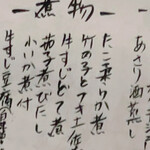 煮物
あさり酒蒸し
たこ柔らか煮
竹の子とフキ土佐煮
牛すじどて煮
茄子煮びたし
小いか煮付
牛すじ豆腐